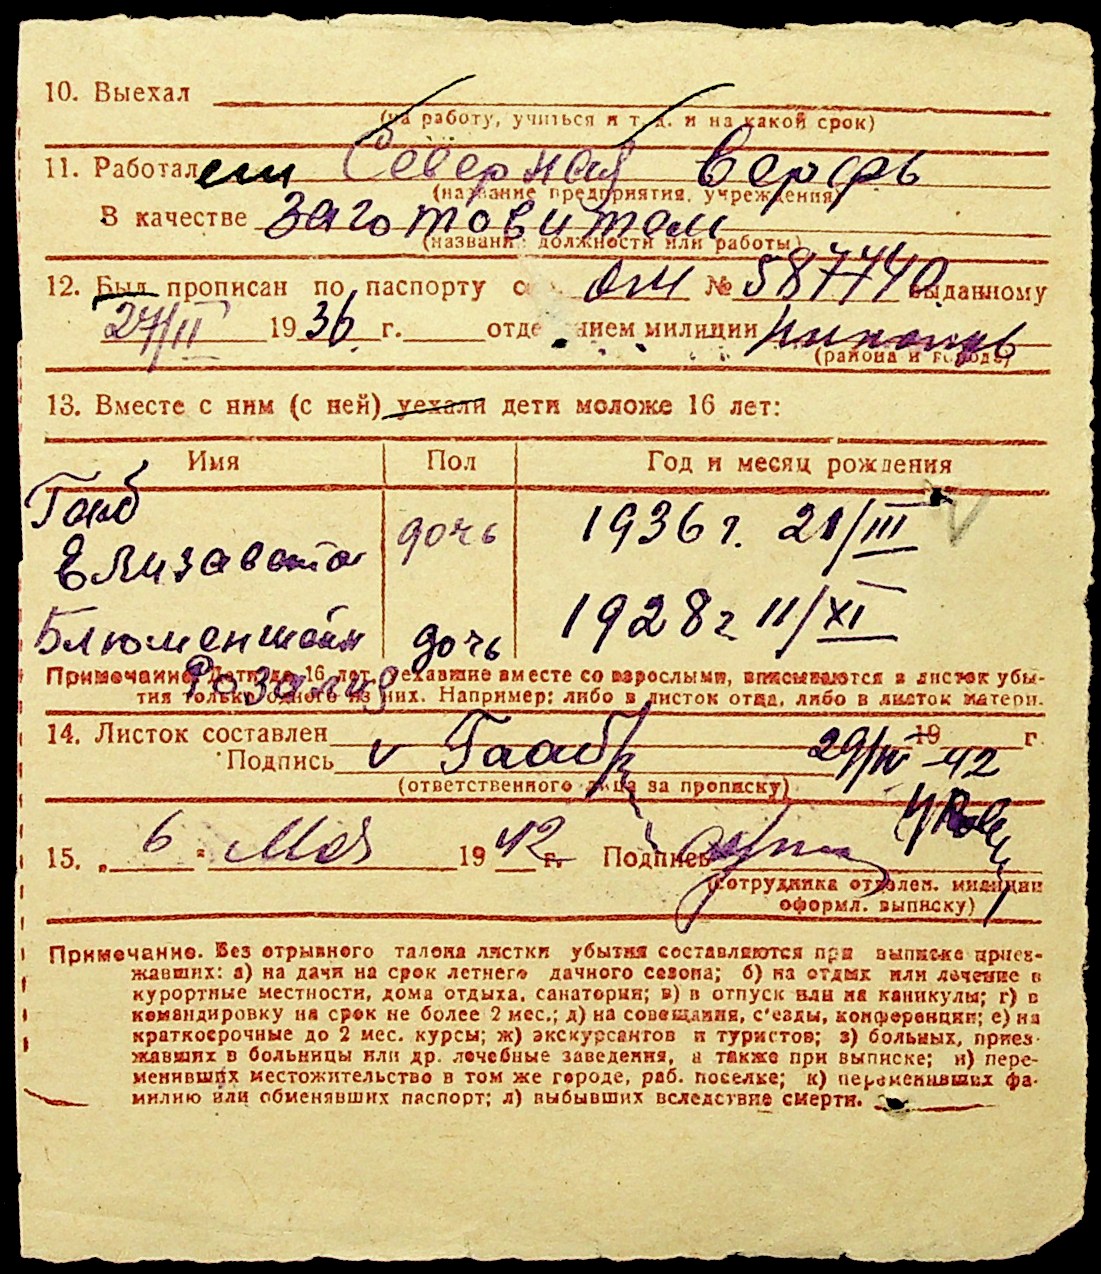 10. Выехал
(на работу, учиться и т. д. и на какой срок)
11. Работал Северная верфь
(название предприятия, учреждения)
В качестве заготовителя
(название должности или работы)
12. Был прописан по паспорту № 587440 выданному
27/II 1936 г. отделением милиции
(района и города)
13. Вместе с ним (с ней) уехали дети моложе 16 лет:
Имя Пол Год и месяц рождения
Гааб
Елизавета дочь 1936 г. 21/III
Блюменштейн дочь 1928 г 11/XI
Розалия
Примечание. Дети до 16 лет, уехавшие вместе со взрослыми, вписываются в листок убы-
тия только одного из них. Например: либо в листок отца, либо в листок матери.
14. Листок составлен 29/IV 1942 г.
Подпись v Гааб
(ответственного лица за прописку)
15. „ 6 " Мая 1942 г. Подпись
(сотрудника отделен. милиции
оформл. выписку)
Примечание. Без отрывного талона листки убытия составляются при выписке приез-
жавших: а) на дачи на срок летнего дачного сезона; б) на отдых или лечение в
курортные местности, дома отдыха, санатории; в) в отпуск или на каникулы; г) в
командировку на срок не более 2 мес.; д) на совещания, с'езды, конференции; е) на
краткосрочные до 2 мес. курсы; ж) экскурсантов и туристов; з) больных, приез-
жавших в больницы или др. лечебные заведения, а также при выписке; и) пере-
менивших местожительство в том же городе, раб. поселке; к) переменивших фа-
милию или обменявших паспорт; л) выбывших вследствие смерти.